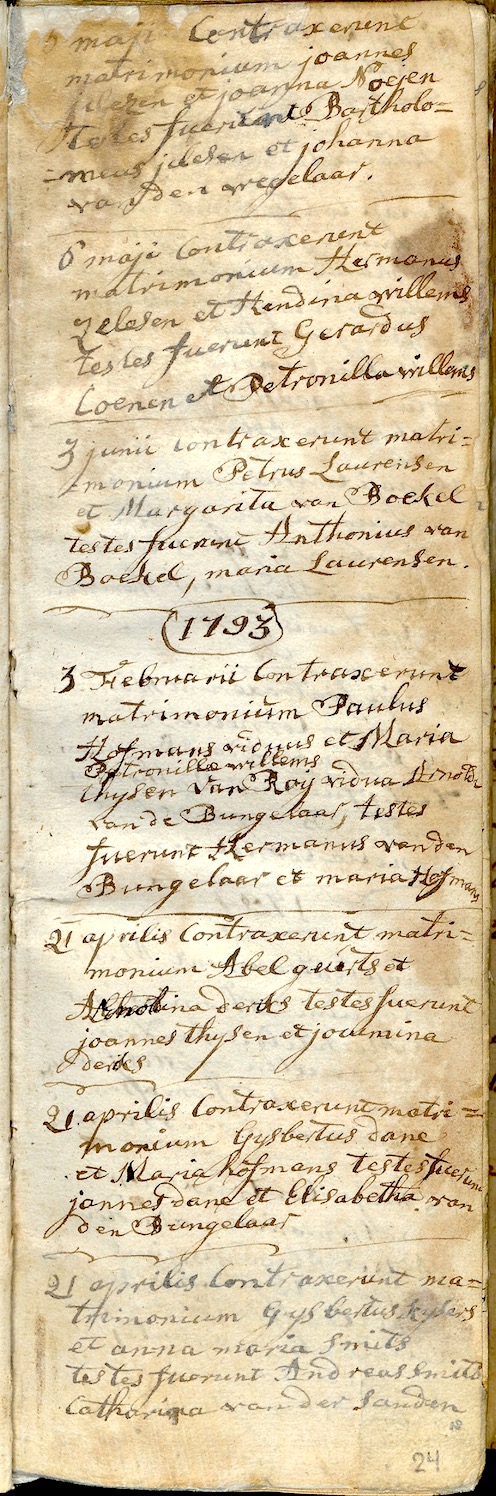 maji Contraxerunt
matrimonium joannes
et joanna Noejen
Testes fuerunt Bartholo=
=meus julesen et johanna
van den wegelaar.
6 maji Contraxerunt
matrimonium Hermanus
Zelesen et Hendina willems
testes fuerunt Gerardus
Coenen et Petronilla willems
3 junii contraxerunt matri=
=monium Petrus Laurensen
et Margarita van Boekel
testes fuerunt Anthonius van
Boekel, maria Laurensen.
1793
3 Februarii Contraxerunt
matrimonium Paulus
Hofmans viduus et Maria
Petronilla willems
thysen van Raij vidua Arnoldi
van de Bungelaar, testes
fuerunt Hermanus van den
Bungelaar et maria Hofmans
21 aprilis Contraxerunt matri=
monium Abel guerts et
derks testes fuerunt
joannes thysen et joumina
derks
21 aprilis Contraxerunt matri=
monium Gysbertus dane
et Maria hofmans testes fuerunt
jannes dane et Elisabetha van
den Bungelaar
21 aprilis Contraxerunt ma=
trimonium Gysbertus
et anna maria Smits
testes fuerunt Andreas Smits
Catharina van der Sanden
24